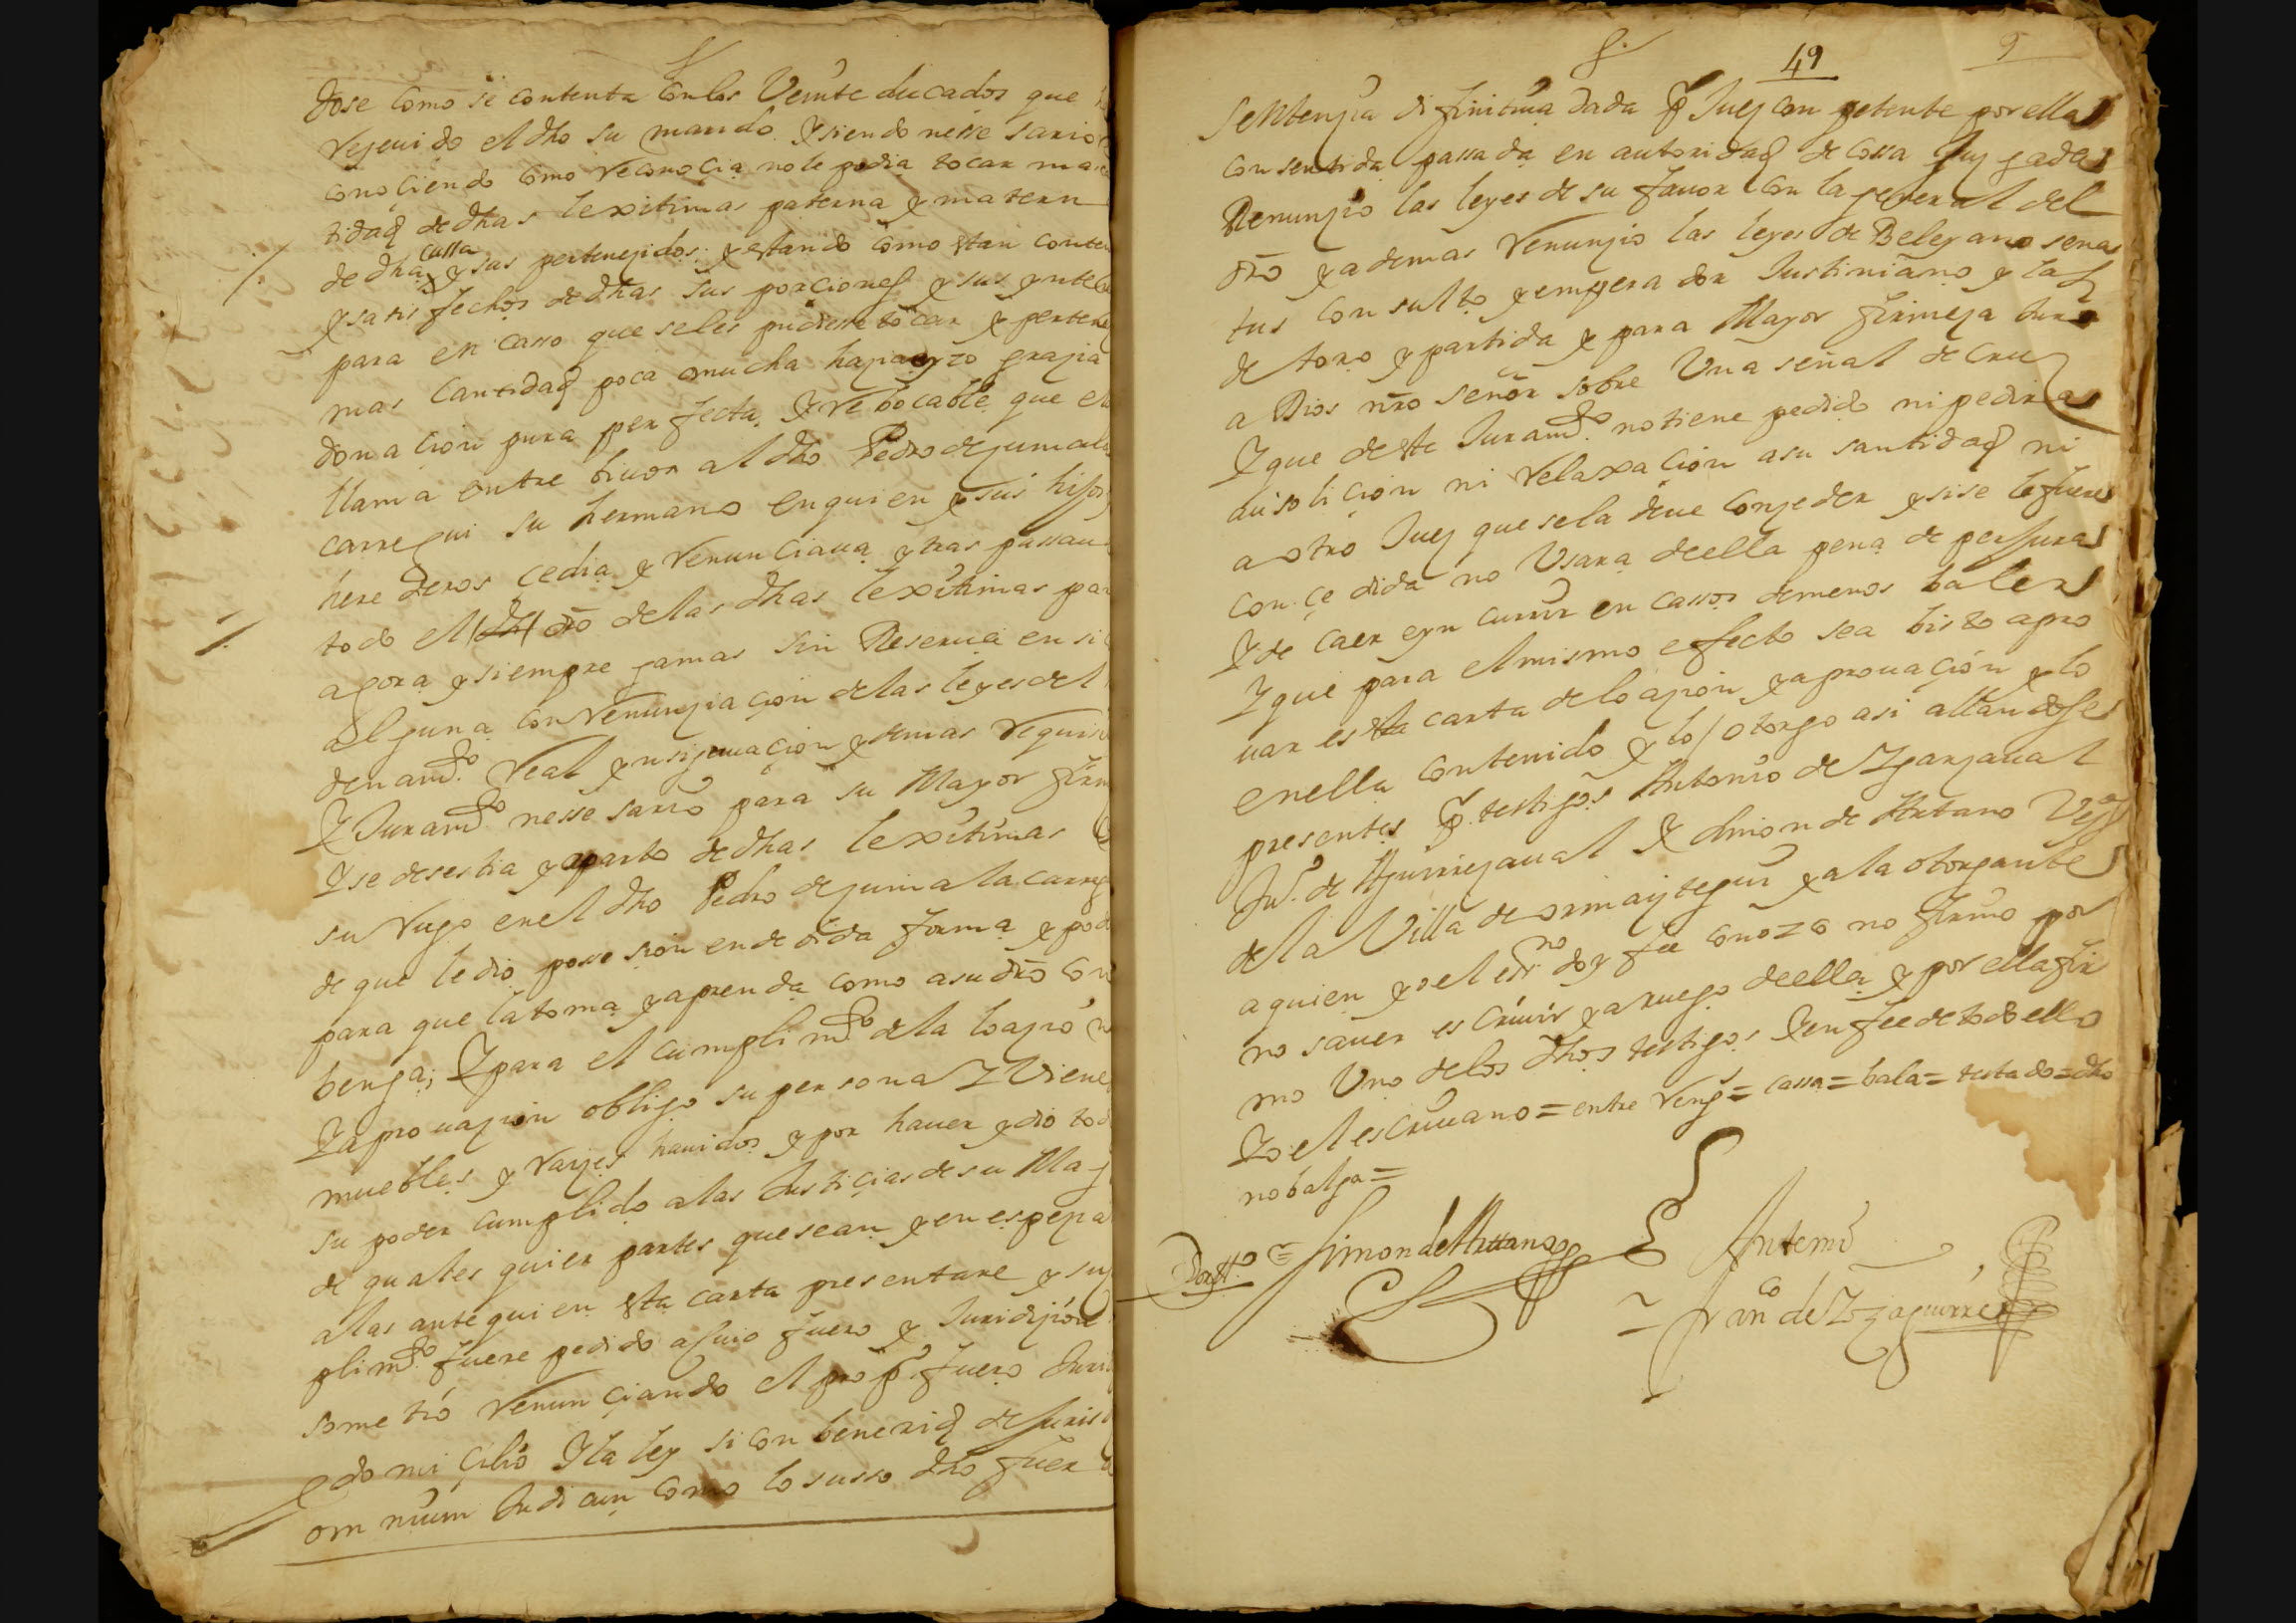 dose como se contenta con los Veinte ducados que
reçeui do el dho su marido. Y siendo nesse sario
conoçiendo como reconoçia no le podia tocar mas
tidad de dhas lexitimas paterna y matern
de dha cassa y sus perteneçidos. y estando como estan conten
y satis fechos de dhas sus porciones y sus ynte
para en casso que se les pudiesse tocar y pertene
mas cantidad poca o mucha haçia y zo graçia
donaçion pura perfecta. Y rebocable que el
llama entre biuos al dho Pedro de jumala
carregui su hermano en quien y sus hijos
here deros çedia y renunçiaua y tras passaua
todo el dho dro de las dhas lexitimas par
agora y siempre jamas sin Reserua en si
alguna con renunçiaçion de las leyes del
denamto. real ynsignuaçion y demas requisi
Y Juramto nesse sario para su Mayor firm
Y se desestia y aparto de dhas lexitimas
su rugo en el dho Pedro de jumala carreg
de que le dio posse sion en deuida forma y pod
para que la toma y aprenda como a su dro con
benga; Y para el cumplimto. de la loaçion
Y aprouaçion obligo su persona Y Viene
muebles y rayzes hauidos y por hauer y dio tod
su poder cumplido a las Justiçias de su Mag
de quales quier partes que sean y en espeçia
a las ante quien esta carta presentare y su
plimto. fuere pedido a cuio fuero y Juridiçion
some tio renunçiando el propo. fuero Juri
y domiçilio Y la ley si conbenerid de juris
omnium Judicun como lo susso dho fuer
8.
49
9
Sentençia difinitiua dada por Juez con petente por ella
consentida passada en autoridad de cossa Juzgada
Renunçio las leyes de su fauor con la general del
dro y ademas renunçio las leyes de Beleyano sena
tus consulto y emperador Justiniano y las
de toro y partida y para Mayor firmeza Juro
a Dios nro señor sobre Una señal de Cruz
Y que deste Juramto. no tiene pedido ni pedira
ausoliçion ni relaxaçion a su santidad ni
a otro Juez que se la deue conçeder y si se le fuere
conçedida no Usara de ella pena de perjura
Y de caer e yn currir en cassos de menos baler
Y que para el mismo efecto sea bisto apro
uar esta carta de loaçion y aprouaçion y lo
en ella contenido y lo otorgo asi allandose
presentes por testigos Antonio de Yçarçaual
Ju. de Aguirreçaual Y Simon de Artano Vezos
de la Villa de ormayztegui y a la otorgante
a quien yo el essno doy fee conozco no firmo por
no sauer escriuir y a ruego de ella y por ella fir
mo Uno de los dhos testigos Y en fee de todo ello
Yo el escriuano = entre reng = cassa = bala = testado = dho
no balga =
Simon de Artano
Ante mi
Franco de Yozaguirre